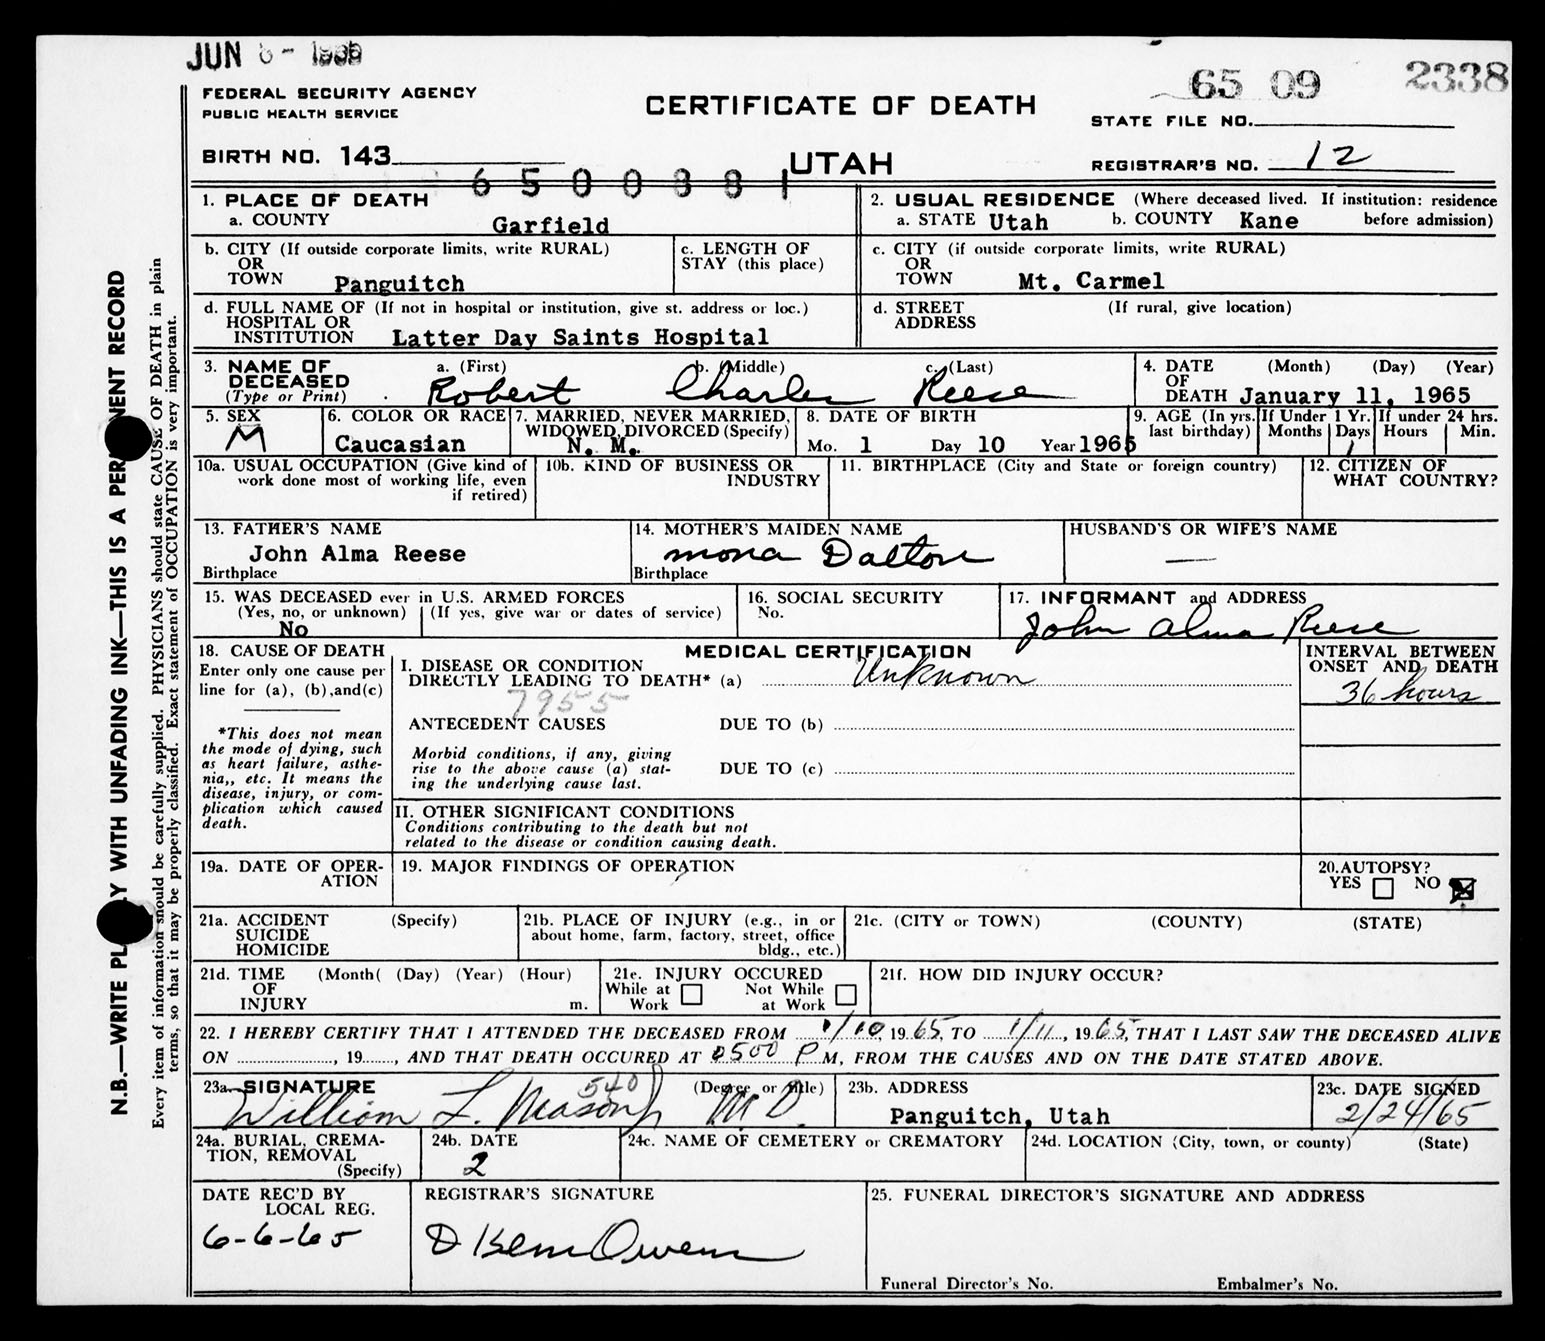 JUN 8 - 1965
65 09 2338
FEDERAL SECURITY AGENCY
PUBLIC HEALTH SERVICE
CERTIFICATE OF DEATH
STATE FILE NO.
BIRTH NO. 143
UTAH
REGISTRAR'S NO. 12
1. PLACE OF DEATH
a. COUNTY
Garfield
2. USUAL RESIDENCE (Where deceased lived. If institution: residence before admission)
a. STATE Utah b. COUNTY Kane
b. CITY (If outside corporate limits, write RURAL)
OR
TOWN Panguitch
c. LENGTH OF
STAY (this place)
c. CITY (if outside corporate limits, write RURAL)
OR
TOWN Mt. Carmel
d. FULL NAME OF (If not in hospital or institution, give st. address or loc.)
HOSPITAL OR
INSTITUTION Latter Day Saints Hospital
d. STREET (If rural, give location)
ADDRESS
3. NAME OF DECEASED
(Type or Print)
a. (First) b. (Middle) c. (Last)
Robert Charles Reese
4. DATE (Month) (Day) (Year)
OF
DEATH January 11, 1965
5. SEX
M
6. COLOR OR RACE
Caucasian
7. MARRIED, NEVER MARRIED,
WIDOWED, DIVORCED (Specify)
N. M.
8. DATE OF BIRTH
Mo. 1 Day 10 Year 1965
9. AGE (In yrs. last birthday)
If Under 1 Yr.
Months Days
1
If under 24 hrs.
Hours Min.
10a. USUAL OCCUPATION (Give kind of
work done most of working life, even
if retired)
10b. KIND OF BUSINESS OR
INDUSTRY
11. BIRTHPLACE (City and State or foreign country)
12. CITIZEN OF
WHAT COUNTRY?
13. FATHER'S NAME
John Alma Reese
Birthplace
14. MOTHER'S MAIDEN NAME
Mona Dalton
Birthplace
HUSBAND'S OR WIFE'S NAME
—
15. WAS DECEASED ever in U.S. ARMED FORCES
(Yes, no, or unknown) (If yes, give war or dates of service)
No
16. SOCIAL SECURITY
No.
17. INFORMANT and ADDRESS
John Alma Reese
18. CAUSE OF DEATH
Enter only one cause per
line for (a), (b), and (c)
*This does not mean
the mode of dying, such
as heart failure, asthe-
nia,, etc. It means the
disease, injury, or com-
plication which caused
death.
MEDICAL CERTIFICATION
I. DISEASE OR CONDITION
DIRECTLY LEADING TO DEATH* (a) Unknown
7955
ANTECEDENT CAUSES DUE TO (b)
Morbid conditions, if any, giving
rise to the above cause (a) stat-
ing the underlying cause last.
DUE TO (c)
INTERVAL BETWEEN
ONSET AND DEATH
36 hours
II. OTHER SIGNIFICANT CONDITIONS
Conditions contributing to the death but not
related to the disease or condition causing death.
19a. DATE OF OPER-
ATION
19. MAJOR FINDINGS OF OPERATION
20. AUTOPSY?
YES NO
21a. ACCIDENT (Specify)
SUICIDE
HOMICIDE
21b. PLACE OF INJURY (e.g., in or
about home, farm, factory, street, office
bldg., etc.)
21c. (CITY or TOWN) (COUNTY) (STATE)
21d. TIME (Month( (Day) (Year) (Hour)
OF
INJURY m.
21e. INJURY OCCURED
While at Work Not While at Work
21f. HOW DID INJURY OCCUR?
22. I HEREBY CERTIFY THAT I ATTENDED THE DECEASED FROM 1/10, 1965, TO 1/11, 1965, THAT I LAST SAW THE DECEASED ALIVE
ON , 19 , AND THAT DEATH OCCURED AT 0500 P M, FROM THE CAUSES AND ON THE DATE STATED ABOVE.
23a. SIGNATURE (Degree or title)
540
William L. Mason Jr M.D.
23b. ADDRESS
Panguitch, Utah
23c. DATE SIGNED
2/24/65
24a. BURIAL, CREMA-
TION, REMOVAL
(Specify)
24b. DATE
2
24c. NAME OF CEMETERY or CREMATORY
24d. LOCATION (City, town, or county) (State)
DATE REC'D BY
LOCAL REG.
6-6-65
REGISTRAR'S SIGNATURE
25. FUNERAL DIRECTOR'S SIGNATURE AND ADDRESS
Funeral Director's No. Embalmer's No.
N.B.—WRITE PLAINLY WITH UNFADING INK—THIS IS A PERMANENT RECORD
Every item of information should be carefully supplied. PHYSICIANS should state CAUSE OF DEATH in plain
terms, so that it may be properly classified. Exact statement of OCCUPATION is very important.